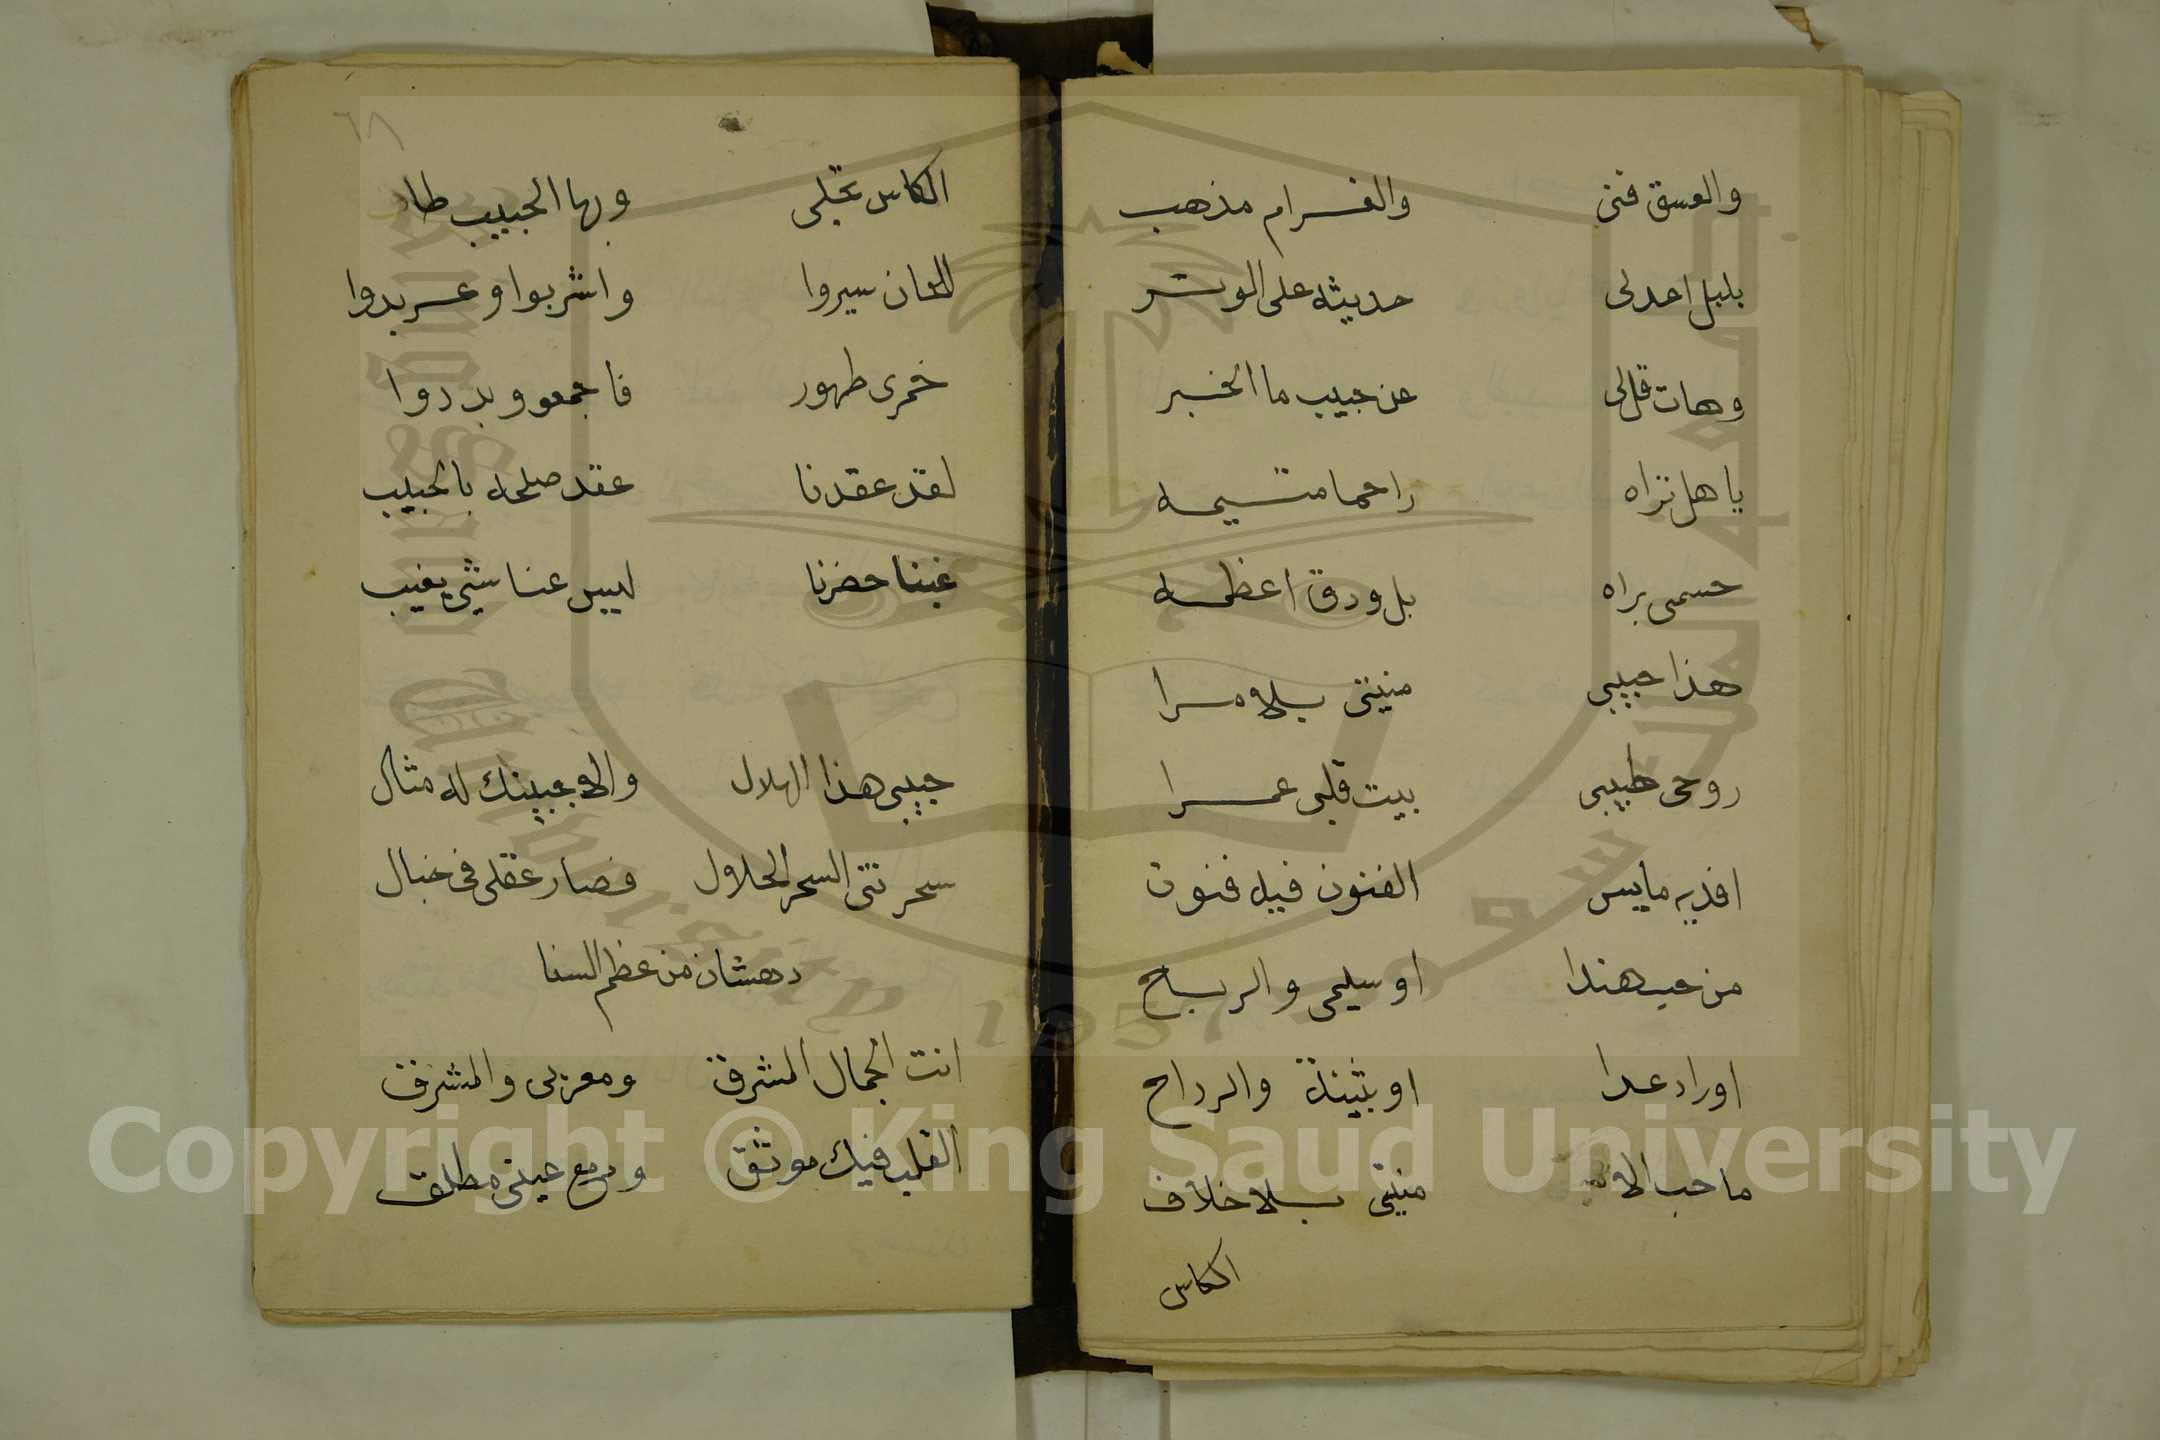 والعسق فنى والغرام مذهب
بلبل اعدلى حديثه على الوتر
وهات قل لى عن حبيب ما الخبر
يا هل تراه راحما متيمه
حسمى براه بل ودق اعظمه
هذا حبيبى منيتى بلا مرا
روحى طبيبى بيت قلبى عمرا
افديه مايس الفنون فيه فنون
من حب هندا او سليمى والرباح
اوراد عدا او بثينة والرداح
ما حب الا منيتى بلا خلاف
الكاس
٦٨
الكاس تجلى وبها الحبيب طاف
للحان سيروا واشربوا وعربدوا
خمرى طهور فاجمعو وبددوا
لقد عقدنا عقد صلحه بالحبيب
غبنا حضرنا ليس عنا شيء يغيب
حبيبى هذا الهلال والا جبينك له مثال
سحرتنى السحر الحلال فصار عقلى فى خبال
دهشان من عظم السنا
انت الجمال المشرق ومغربى والمشرق
القلب فيك موثق ودمع عينى مطلق
Copyright © King Saud University
King Saud University 1957
جامعة الملك سعود